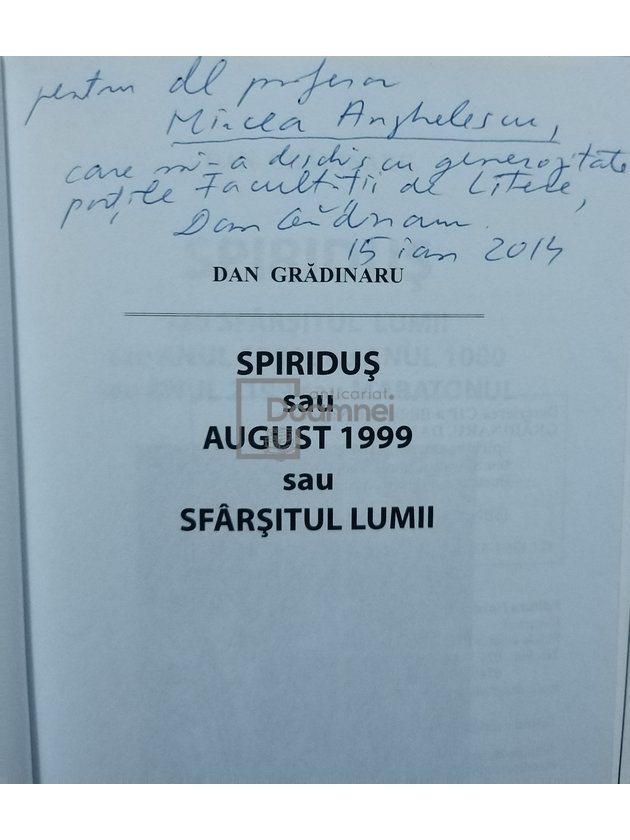 pentru dl profesor
Mircea Anghelescu,
care mi-a deschis cu generozitate
porțile Facultății de Litere,
Dan Grădinaru
15 ian 2014
DAN GRĂDINARU
SPIRIDUŞ
sau
anticariat
Doamnei
AUGUST 1999
sau
SFÂRŞITUL LUMII